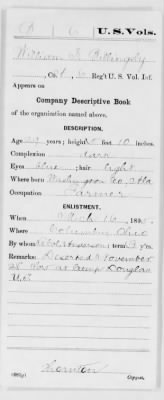 B 6 U.S. Vols.
William S. Billingsly
Co. , 6 Reg't U. S. Vol. Inf.
Appears on
Company Descriptive Book
of the organization named above.
DESCRIPTION.
Age years; height feet 10 inches.
Complexion dark
Eyes blue; hair light
Where born Washington Co., Ala
Occupation Farmer
ENLISTMENT.
When Mch 16, 186 .
Where Columbus Ohio
By whom ; term 3 y'rs.
Remarks: Deserted November
28 at Camp Douglas
U.T.
Thornton
Copyist.